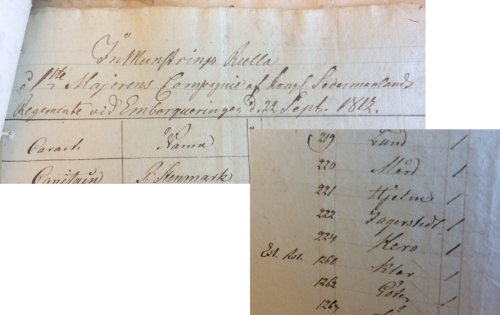 Inmunstrings Rulla
å 1ste Majorens Compagnie af kongl Södermanlands
Regemente vid Embarqueringen d. 22 Sept. 1812.
Caract. Namn
Capitain F. Stenmark
219 Lund /
220 Mård /
221 Hjelm /
222 Jagerstedt /
224 Hero /
Est. Rot. 1260 Klar /
1262 /